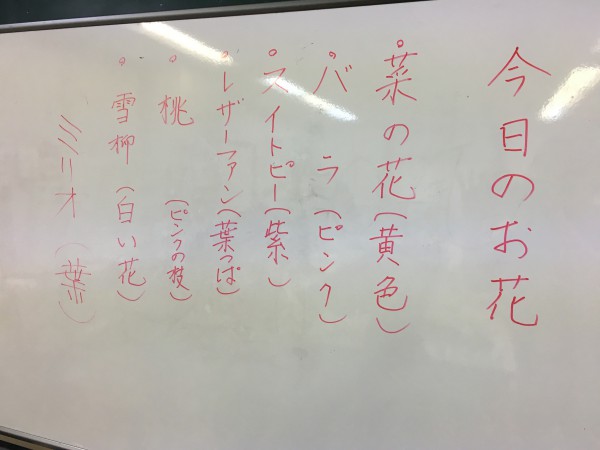 今日のお花
○菜の花(黄色)
○バラ(ピンク)
○スイトピー(紫)
○レザーファン(葉っぱ)
○桃(ピンクの枝)
○雪柳(白い花)
ミリオ(葉)